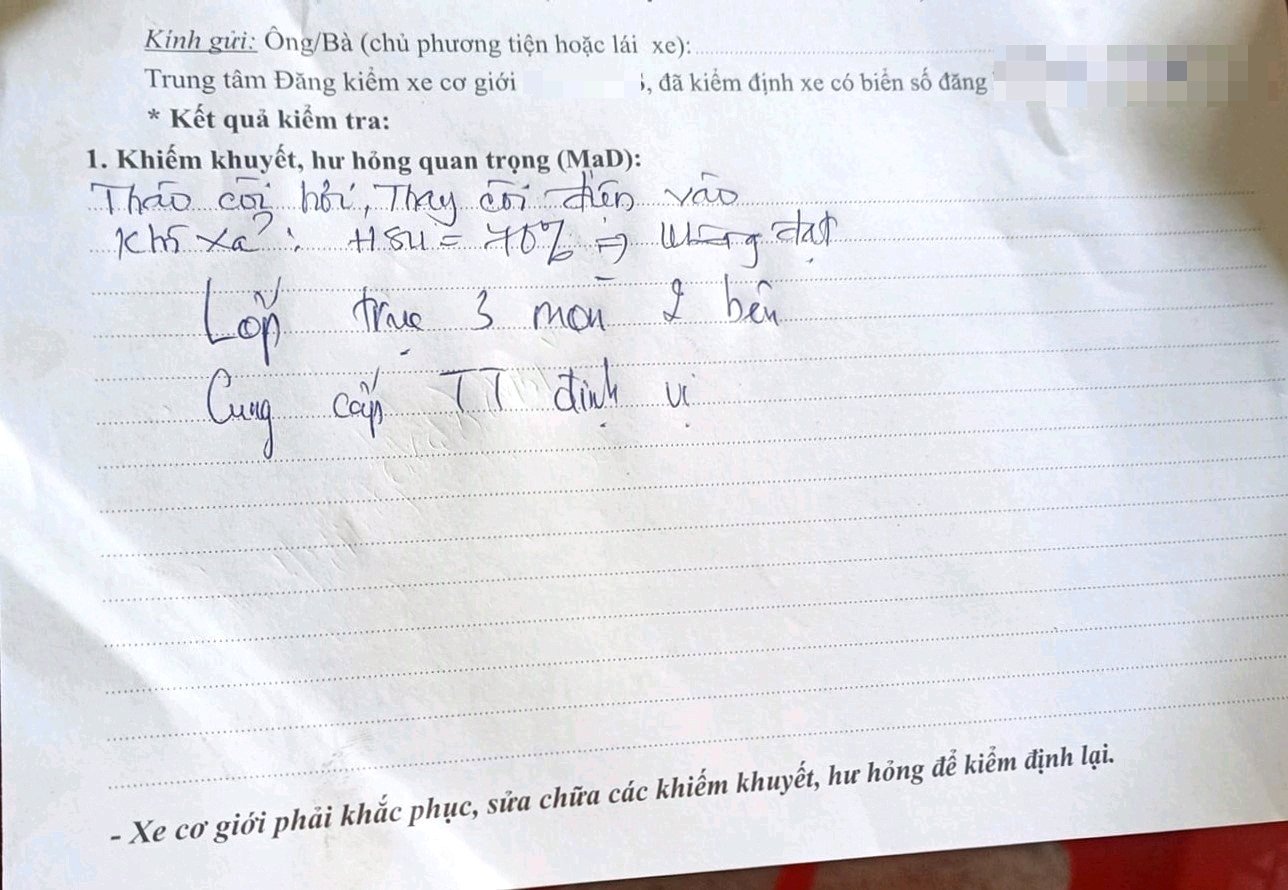 Kính gửi: Ông/Bà (chủ phương tiện hoặc lái xe):
Trung tâm Đăng kiểm xe cơ giới , đã kiểm định xe có biển số đăng
* Kết quả kiểm tra:
1. Khiếm khuyết, hư hỏng quan trọng (MaD):
Tháo còi hơi, Thay còi điện vào
Khí xả: HSU = 70% => không đạt
Lốp trục 3 mòn 2 bên
Cung cấp TT định vị
- Xe cơ giới phải khắc phục, sửa chữa các khiếm khuyết, hư hỏng để kiểm định lại.